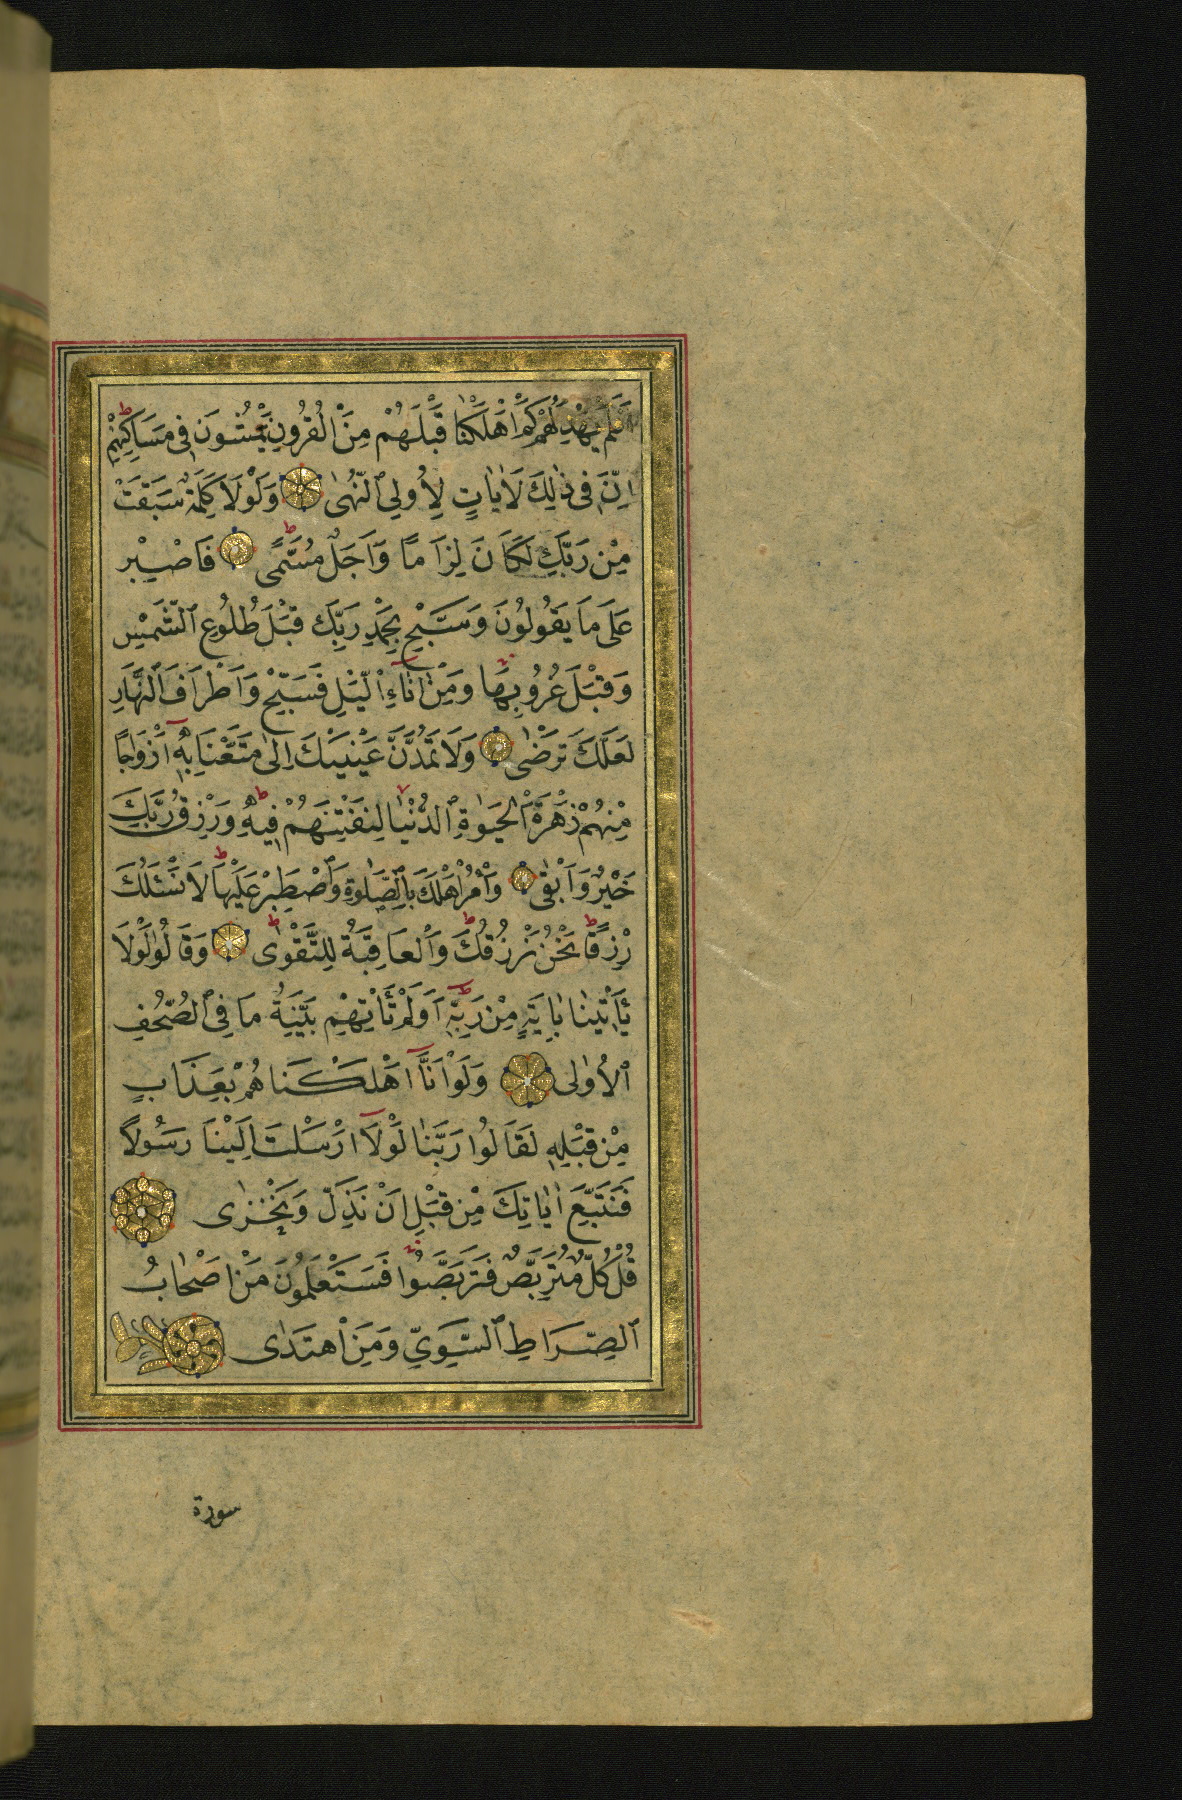 اَفَلَمْ يَهْدِ لَهُمْ كَمْ اَهْلَكْنَا قَبْلَهُمْ مِنَ الْقُرُونِ يَمْشُونَ فِى مَسَاكِنِهِمْ
اِنَّ فِى ذٰلِكَ لَاٰيَاتٍ لِاُولِى النُّهٰى وَلَوْلَا كَلِمَةٌ سَبَقَتْ
مِنْ رَبِّكَ لَكَانَ لِزَامًا وَاَجَلٌ مُسَمًّى فَاصْبِرْ
عَلٰى مَا يَقُولُونَ وَسَبِّحْ بِحَمْدِ رَبِّكَ قَبْلَ طُلُوعِ الشَّمْسِ
وَقَبْلَ غُرُوبِهَا وَمِنْ اٰنَآءِ الَّيْلِ فَسَبِّحْ وَاَطْرَافَ النَّهَارِ
لَعَلَّكَ تَرْضٰى وَلَا تَمُدَّنَّ عَيْنَيْكَ اِلٰى مَا مَتَّعْنَا بِهٖٓ اَزْوَاجًا
مِنْهُمْ زَهْرَةَ الْحَيٰوةِ الدُّنْيَا لِنَفْتِنَهُمْ فِيهِ وَرِزْقُ رَبِّكَ
خَيْرٌ وَاَبْقٰى وَاْمُرْ اَهْلَكَ بِالصَّلٰوةِ وَاصْطَبِرْ عَلَيْهَا لَا نَسْـَٔلُكَ
رِزْقًا نَحْنُ نَرْزُقُكَ وَالْعَاقِبَةُ لِلتَّقْوٰى وَقَالُوا لَوْلَا
يَاْتِينَا بِاٰيَةٍ مِنْ رَبِّهٖ اَوَلَمْ تَاْتِهِمْ بَيِّنَةُ مَا فِى الصُّحُفِ
الْاُولٰى وَلَوْ اَنَّآ اَهْلَكْنَاهُمْ بِعَذَابٍ
مِنْ قَبْلِهٖ لَقَالُوا رَبَّنَا لَوْلَآ اَرْسَلْتَ اِلَيْنَا رَسُولًا
فَنَتَّبِعَ اٰيَاتِكَ مِنْ قَبْلِ اَنْ نَذِلَّ وَنَخْزٰى
قُلْ كُلٌّ مُتَرَبِّصٌ فَتَرَبَّصُوا فَسَتَعْلَمُونَ مَنْ اَصْحَابُ
الصِّرَاطِ السَّوِىِّ وَمَنِ اهْتَدٰى
سورة